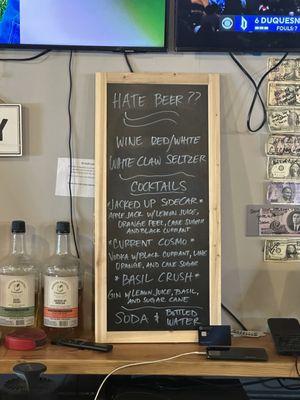 6 DUQUESN
FOULS: 7
HATE BEER??
WINE RED/WHITE
WHITE CLAW SELTZER
COCKTAILS
*JACKED UP SIDECAR*
APPLE JACK W/LEMON JUICE,
ORANGE PEEL, CANE SUGAR
AND BLACK CURRANT
*CURRENT COSMO*
VODKA W/BLACK CURRANT, LIME
ORANGE, AND CANE SUGAR
*BASIL CRUSH*
GIN W/LEMON JUICE, BASIL,
AND SUGAR CANE
SODA & BOTTLED
WATER
Y